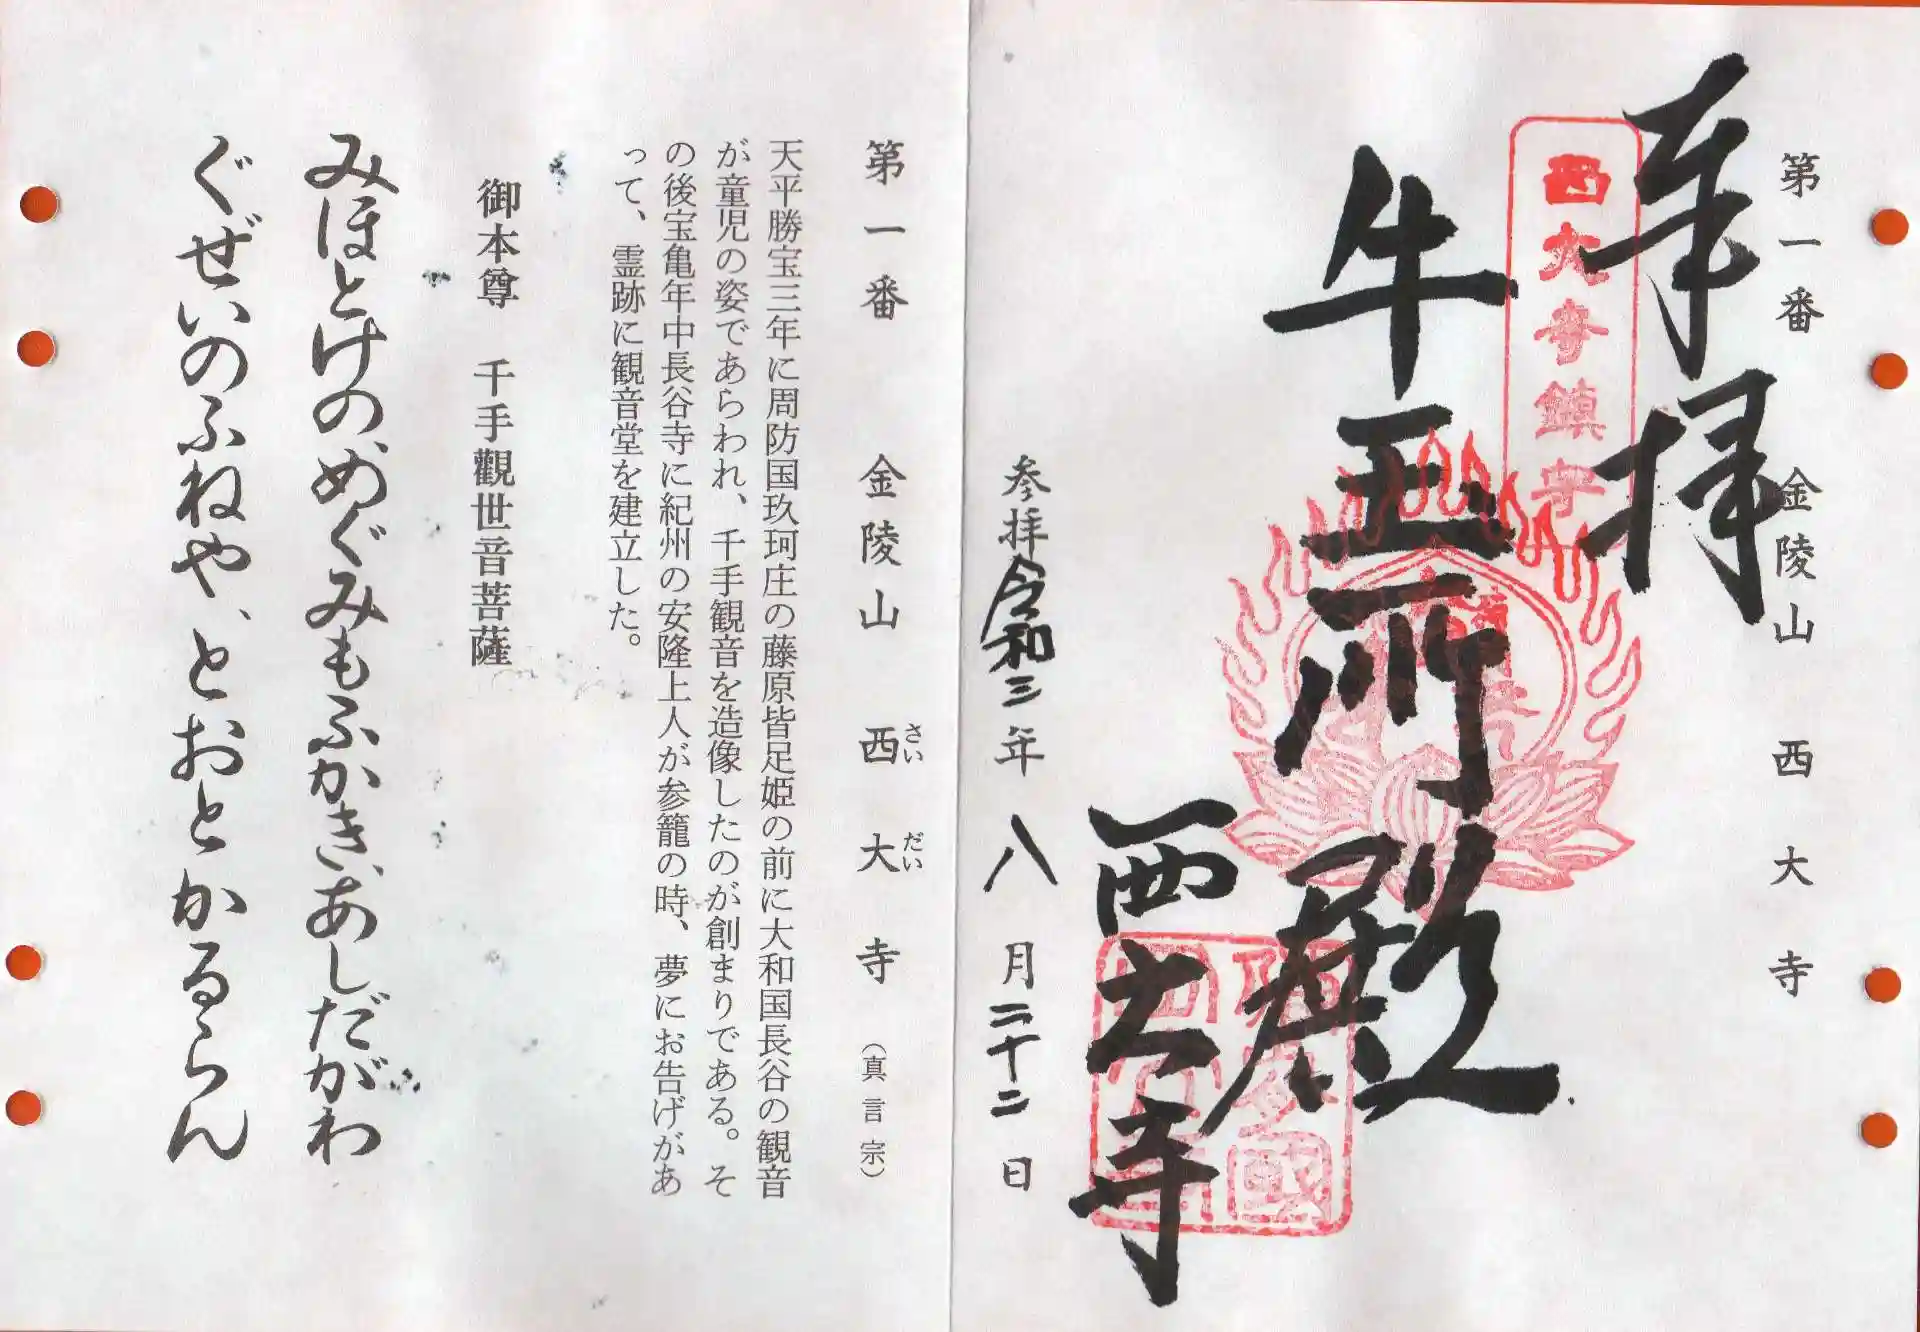 第一番　金陵山　西大寺
奉拝
西大寺鎮守
牛玉所殿
西大寺
参拝令和三年八月二十二日
第一番　金陵山　西大寺（真言宗）
さいだい
天平勝宝三年に周防国玖珂庄の藤原皆足姫の前に大和国長谷の観音
が童児の姿であらわれ、千手観音を造像したのが創まりである。そ
の後宝亀年中長谷寺に紀州の安隆上人が参籠の時、夢にお告げがあ
って、霊跡に観音堂を建立した。
御本尊　千手觀世音菩薩
みほとけの、めぐみもふかき、あしだがわ
ぐぜいのふねや、とおとかるらん